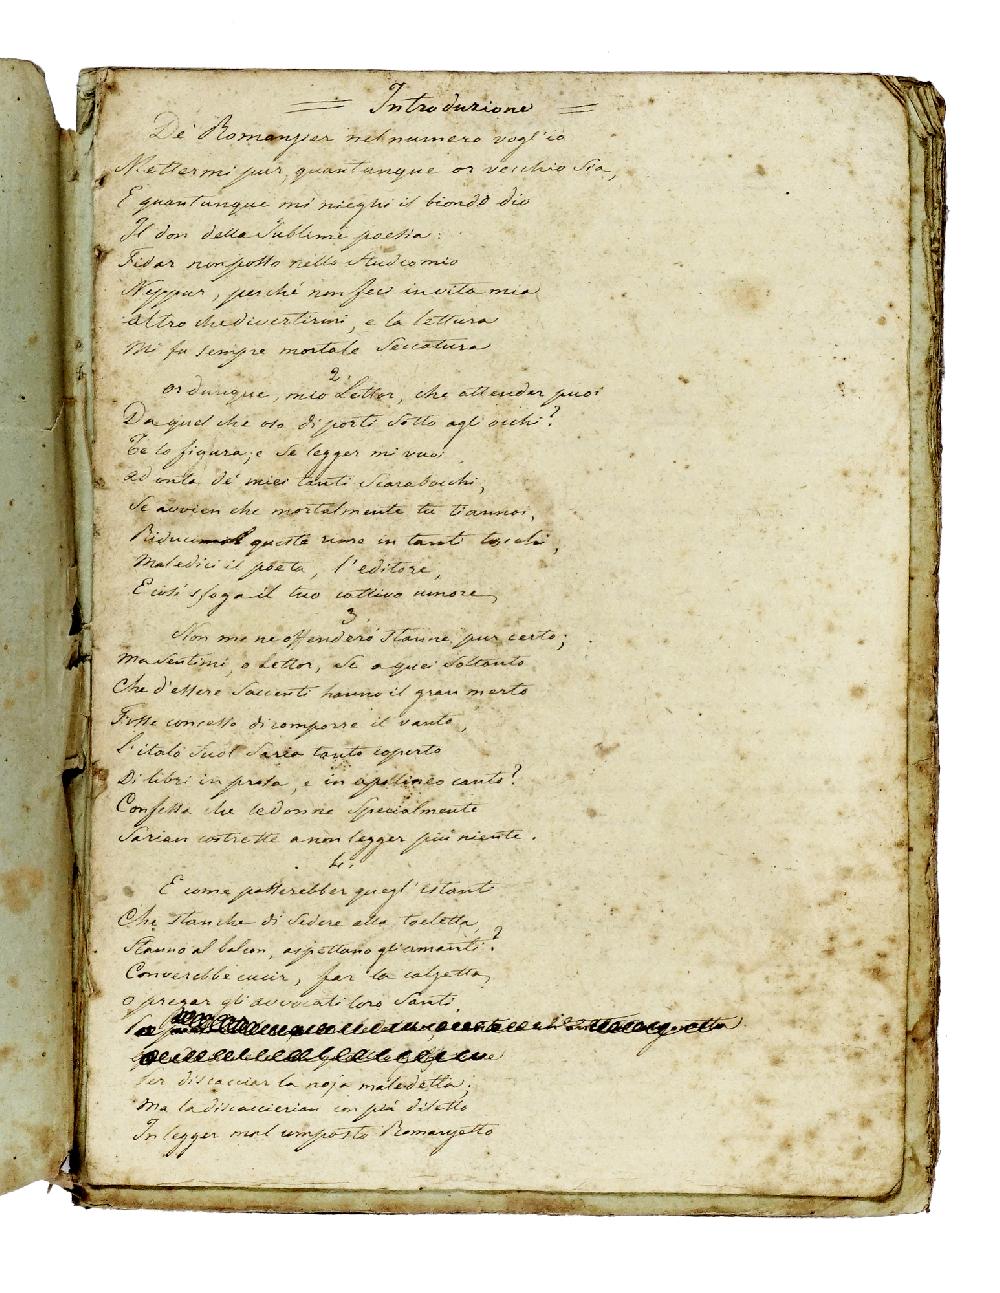 = Introduzione =
De' Romanzier nel numero vogl'io
Mettermi pur, quantunque or vecchio sia,
E quantunque mi nieghi il biondo dio
Il don della sublime poesia:
Fidar non posso nello studio mio
Neppur, perché non feci in vita mia
Altro che divertirmi, e la lettura
Mi fu sempre mortale seccatura
2.
Or dunque, mio Lettor, che attender puoi
Da quel che oso di porti sotto agl'occhi?
Te lo figura; e se legger mi vuoi
Ad onta de' miei tanti scarabocchi,
Se avvien che mortalmente tu t'annoi,
Riduci queste rime in tanti tocchi,
Maledici il poeta, l'editore,
E così sfoga il tuo cattivo umore,
3.
Non me ne offenderò stanne pur certo;
Ma sentimi, o Lettor, se a quei soltanto
Che d'essere saccenti hanno il gran merto
Fosse concesso di comporre il vanto,
L'italo suol saria tanto coperto
Di libri in prosa, e in apollineo canto?
Confessa che le donne specialmente
Sarian costrette a non legger più niente.
4.
E come passerebber quegl'istanti
Che stanche di sedere alla toeletta,
Stanno al balcon, aspettano gli amanti?
Converebbe cucir, far la calzetta,
O pregar gl'avvocati loro Santi
Per discacciar la noja maledetta;
Ma la discaccierian con più diletto
In legger mal composto Romanzetto